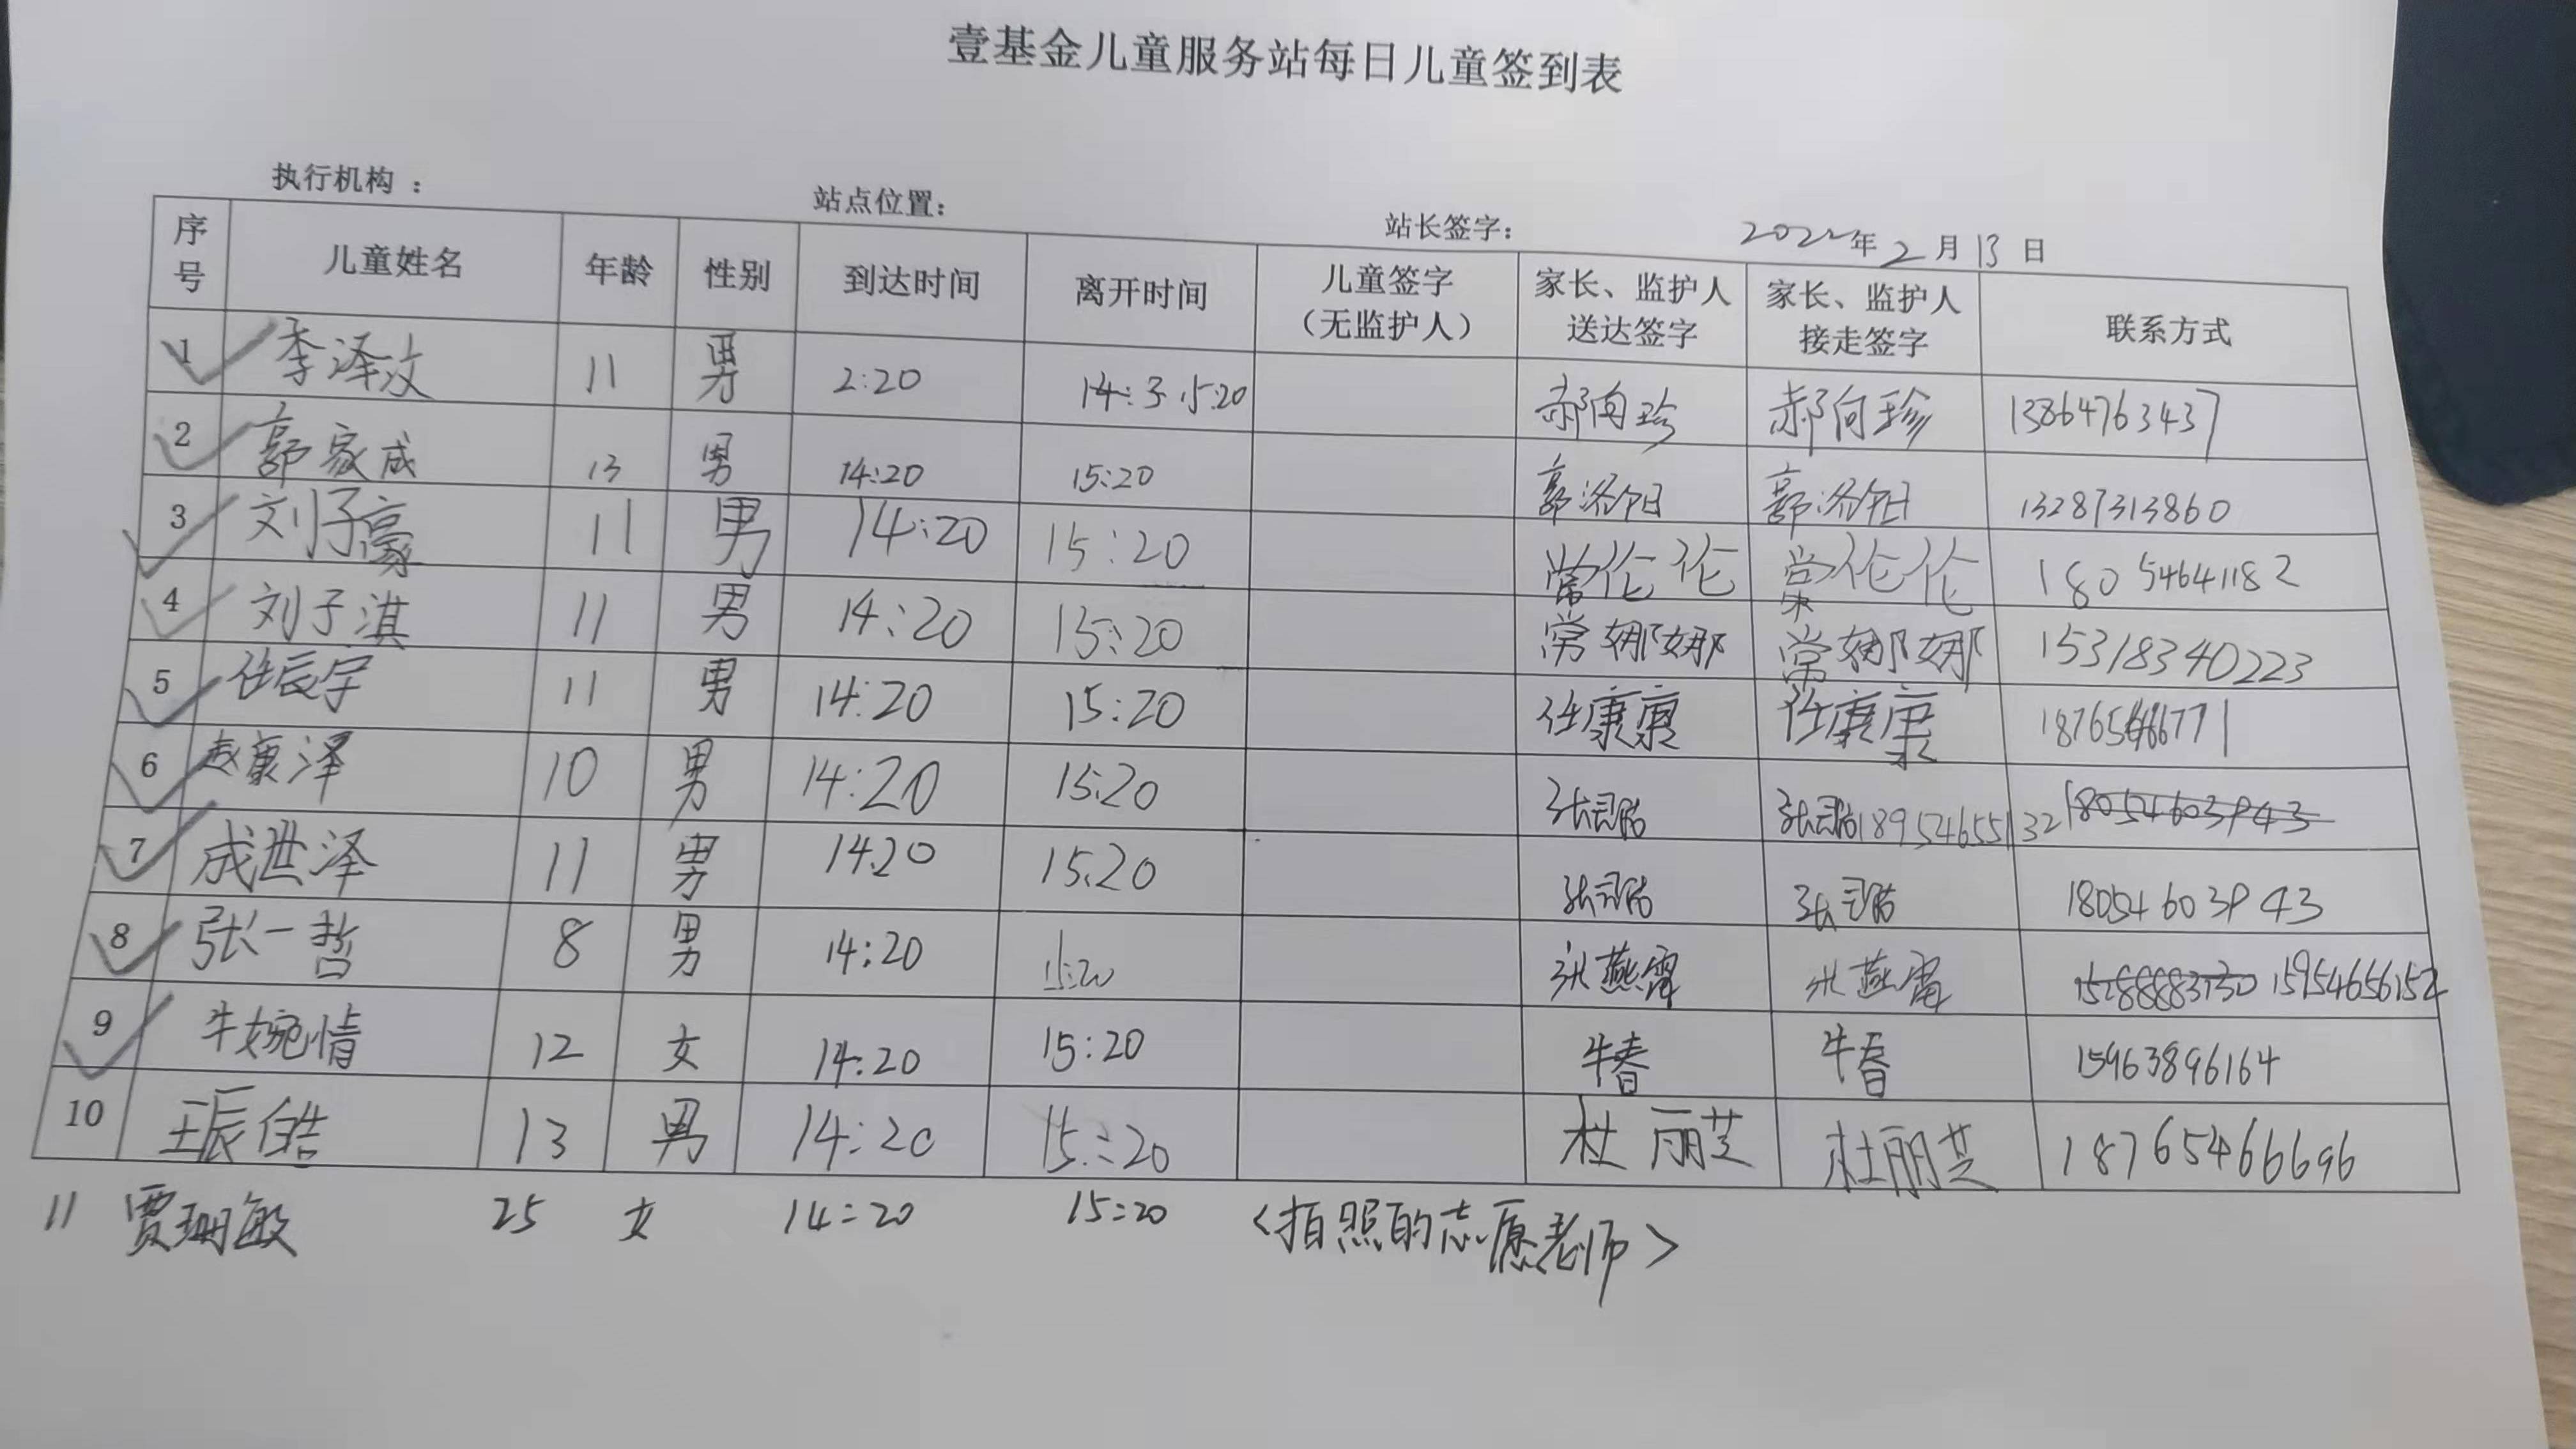 壹基金儿童服务站每日儿童签到表
执行机构： 站点位置： 站长签字： 2022年2月13日
序号 儿童姓名 年龄 性别 到达时间 离开时间 儿童签字（无监护人） 家长、监护人送达签字 家长、监护人接走签字 联系方式
1 李泽汶 11 男 2:20 15:20 郝向珍 郝向珍 13864763437
2 郭家成 13 男 14:20 15:20 郭 郭 13287313860
3 刘子豪 11 男 14:20 15:20 常伦伦 常伦伦 18054641182
4 刘子淇 11 男 14:20 15:20 常娜娜 常娜娜 15318340223
5 任辰宇 11 男 14:20 15:20 任康康 任康康
6 赵康泽 10 男 14:20 15:20 张 张 18954655132 18054603943
7 成世泽 11 男 14:20 15:20 张 张 18054603943
8 张一哲 8 男 14:20 15:20 张燕霄 张燕霄 15954656152
9 牛婉情 12 女 14:20 15:20 牛春 牛春 15963896164
10 王辰皓 13 男 14:20 15:20 杜丽芝 杜丽芝 18765466696
11 贾珊敏 25 女 14:20 15:20 <拍照的志愿老师>